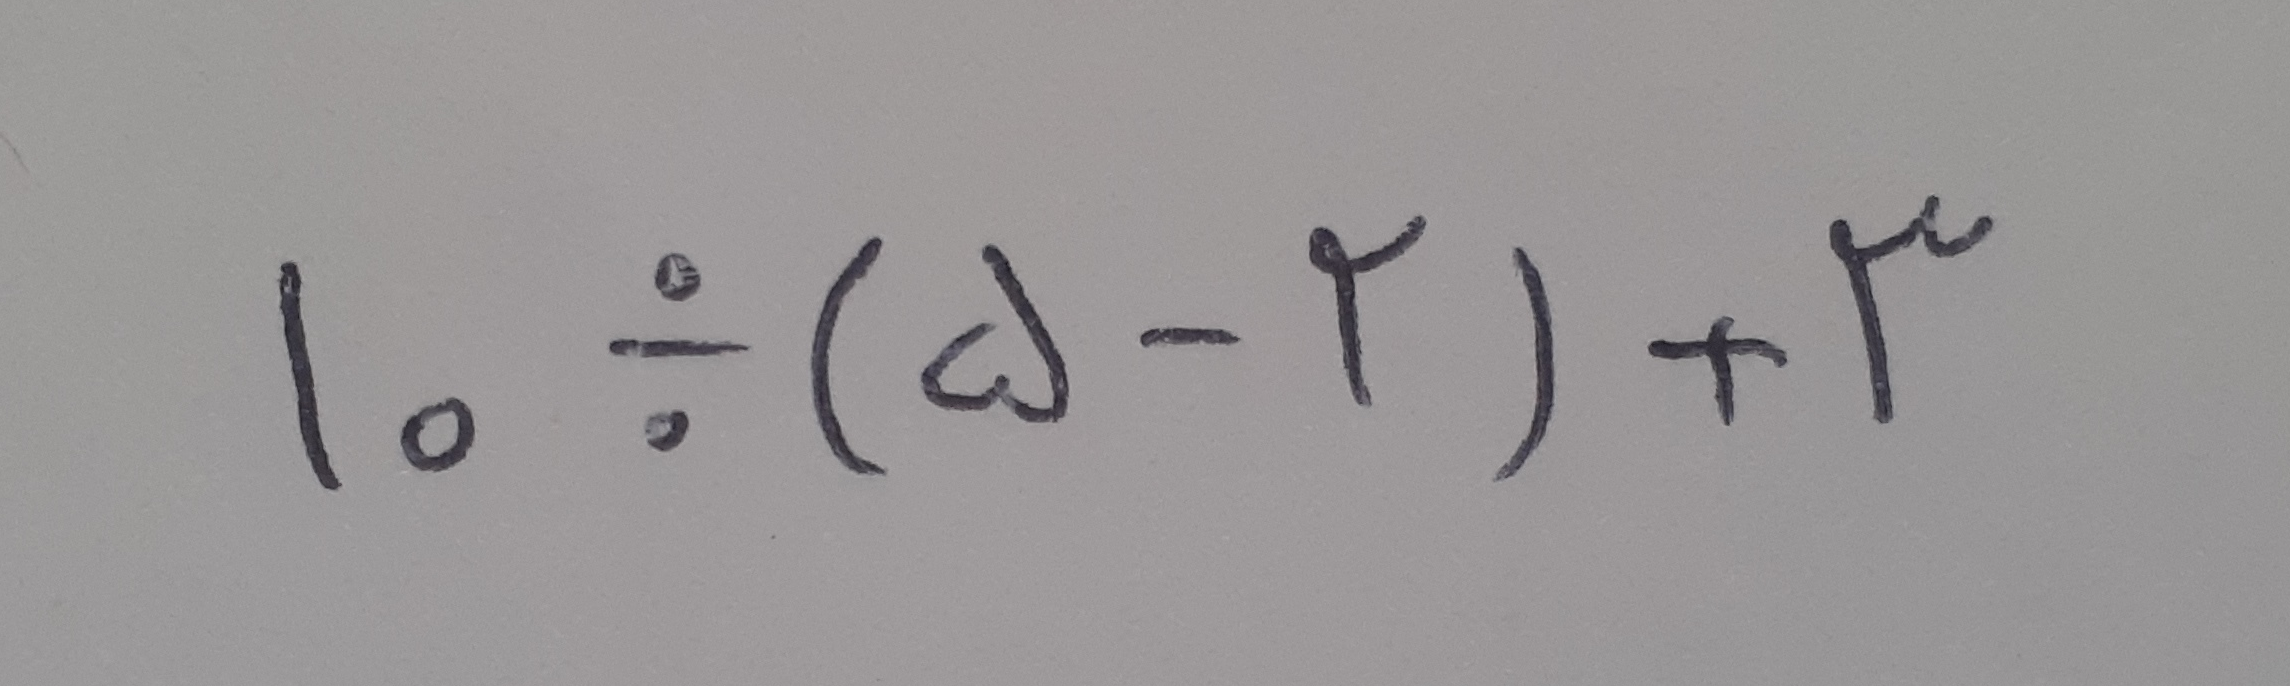 ۱۰ ÷ (۵ - ۲) + ۳